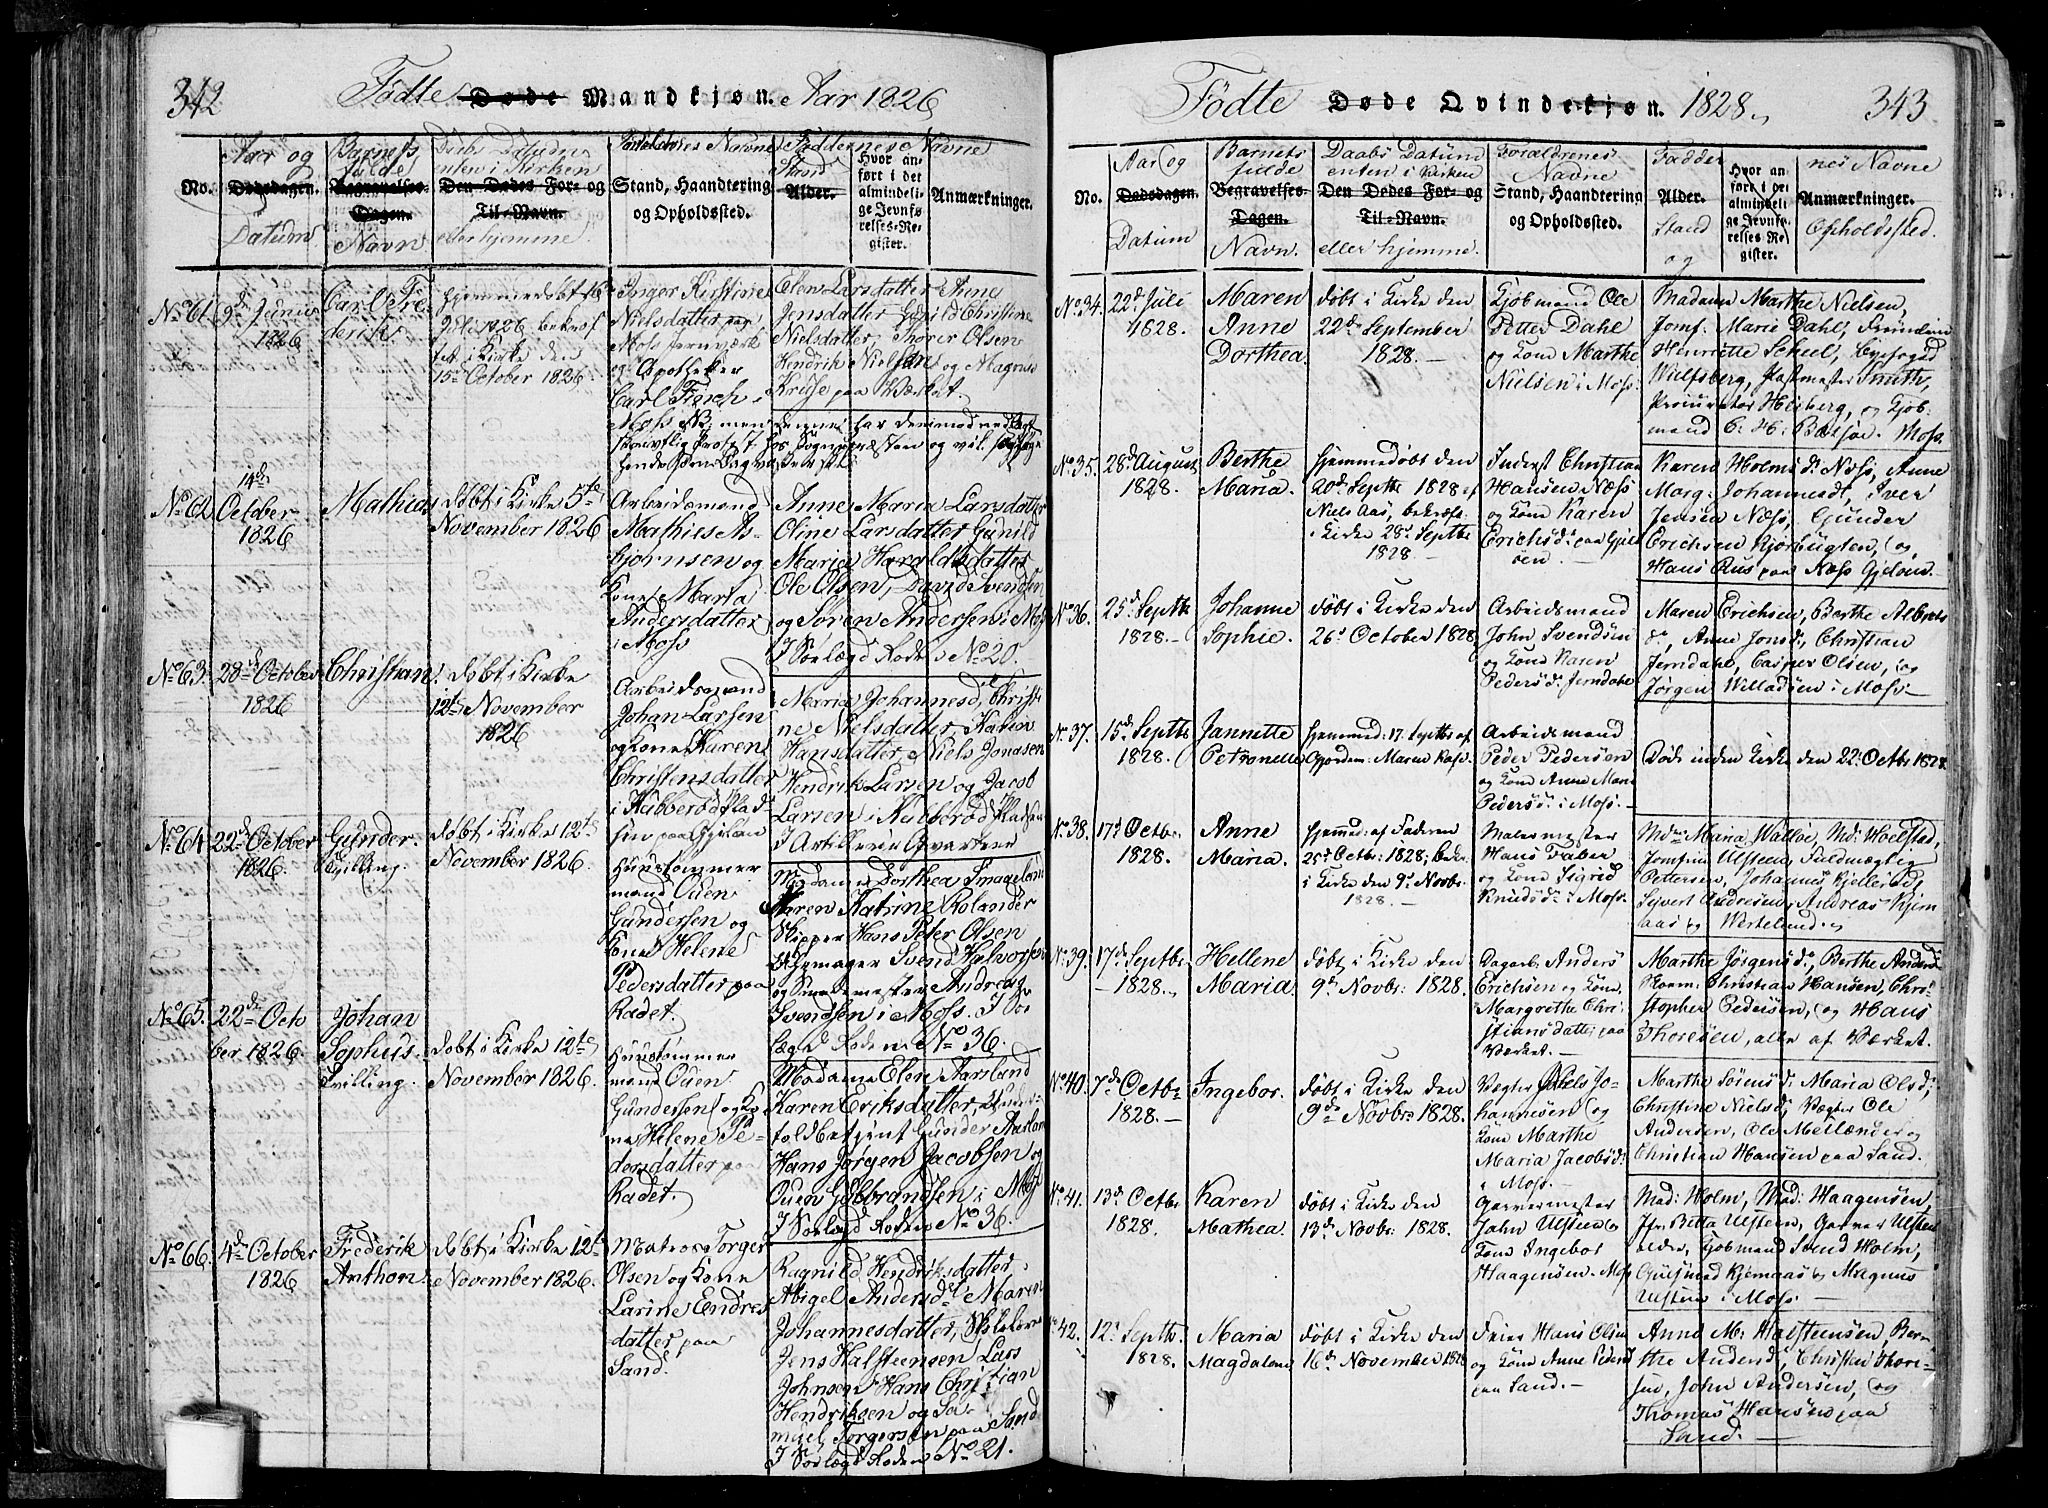 342
Födte Døde Mandkjøn. Aar 1826
No.
Aar og
Dødsdagen.
Datum
Barnets
fulde
Begravelses-
Dagen.
Navn
Daabs Datum
enten i Kirken
Den Dødes For- og
Til-Navn.
eller hjemme.
Forældres Navne
Stand, Haandtering
og Opholdssted.
Faddernes Navne
Stand
Alder.
Hvor an-
ført i det
almindeli-
ge Jevnfø-
relses-Re-
gister.
Anmærkninger.
No 61.
9de Junius
1826
Carl Fre
derik
hjemmedøbt 16
Julii 1826 bekræf
tet i Kirke den
15de October 1826.
Inger Kirstine
Nielsdatter paa
Moss Jernværk
og Apotheker
Carl Fersch i
Moss NB: men
Elen Larsdatter Anne
Jensdatter Christine
Nielsdatter, Thorer Olsen
Hendrik Nielsen og Magnus
Kruse paa Værket.
denne har derimod nedlagt
skrivtlig Protest hos Sognepræsten og vil
No 62
14de
October
1826
Mathias
døbt i Kirke 5te
November 1826
Arbeidsmand
Mathies As-
bjørnsen og
Kone Marta
Andersdatter
i Moss
Anne Maria Larsdatter
Oline Larsdatter Gunild
Maria Haraldsdatter
Ole Olsen, David Svendsen
og Søren Andersen i Moss
I Sørlægd Roden No 20.
No 63.
28de October
1826
Christian.
døbt i Kirke
12te November
1826
Arbeidsmand
Johan Larsen
og Kone Karen
Christensdatter
i Kubberød Plad-
sen paa Gjeløen
Maria Johannesd, Christi
ne Nielsdatter, Karen
Hansdatter, Niels Jonasen
Hendrik Larsen og Jacob
Larsen i Kubberød Pladsen
I Artillerie Qvarteer
No 64
22de October
1826.
Gunder.
Tvilling.
døbt i Kirke 12te
November 1826.
Huustømmer
mand Oden
Gundersen og
Kone Helene
Pedersdatter paa
Radet.
Madame Dorthea Smaageland
Maren Katrine Rolander
Skipper Hans Peter Olsen
Uhrmager Svend Halvorsen
og Smedemester Andreas
Svendsen i Moss. I Sør
Lægd Roden No 36.
No 65.
22de Octo
ber 1826.
Johan
Sophus.
Tvilling.
døbt i Kirke 12te
November 1826.
Huustømmer
mand Oden
Gundersen og Ko
ne Helene Pe-
dersdatter paa
Radet.
Madame Elen Aarsland
Karen Eriksdatter,
toldbetjent Gunder Aarland
Hans Jørgen Jacobsen og
Ouen Gulbrandsen i Moss
I Sørlægd Roden No 36.
No 66.
4de October
1826
Frederik
Anthon.
døbt i Kirke 12te
November 1826.
Matros Torger
Olsen og Kone
Larine Endres
datter paa
Sand.
Ragnild Hendriksdatter,
Abigel Andersd Maren
Johannesdatter,
Jens Halsteensen Lars
Johnsen Hans Christian
Hendriksen og Sa-
muel Torgersen paa Sand
I Sørlægd Roden No 21.
Födte Døde Qvindekjøn. 1828.
343
No.
Aar og
Dødsdagen.
Datum
Barnets
fulde
Begravelses-
Dagen.
Navn.
Daabs Datum
enten i Kirken
Den Dødes For- og
Til-Navn.
eller hjemme.
Forældrenes
Navne
Stand, Haandtering
og Opholdssted.
Fadder
Alder.
Stand
og
Hvor an-
ført i det
almindeli-
ge Jevnfø-
relses Re-
gister.
nes Navne
Anmærkninger.
Opholdssted.
No 34.
22de Juli
1828.
Maren
Anne
Dorthea.
døbt i Kirke den
22de September
1828.
Kjøbmand Ole
Petter Dahl
og Kone Marthe
Nielsen i Moss.
Madam Marthe Nielsen,
Jomf: Marie Dahl, Frøulein
Henriette Scheel, Byefoged
Wulfsberg, Postmester Smith,
Procurator Heiberg, og Kjøb-
mand C: H: Moss.
No 35.
28de August
1828.
Berthe
Maria.
hjemmedøbt den
20de Septbr 1828 af
Niels Aas, bekræf:
i Kirke 28de Septbr
1828
Inderst Christian
Hansen Næss
og Kone Karen
Erichsd: paa Gjel
øen.
Karen Holms d: Næss, Anne
Marg: Johannesd:, Iver
Jensen Næss, Gunder
Erichsen Kjørbugten, og
Hans paa Næss Gjeløen.
No 36.
25de Septbr
1828.
Johanne
Sophie.
døbt i Kirke den
26de October 1828
Arbeidsmand
John Svendsen
og Kone Karen
Pedersd: Jerndahl
Maren Erichsen, Berthe Alberts
d:, Anne Jonsd:, Christian
Jerndahl, Casper Olsen, og
Jørgen Willadsen i Moss.
No 37.
15de Septbr
1828.
Jannette
Petronelle
hjemmed: 17 Septbr af
Gjordem: Maren
Arbeidsmand
Peder Pedersen
og Kone Anne Mar:
Pedersd: i Moss.
Døde inden Kirke den 22de Octbr 1828.
No 38.
17de Octbr:
1828.
Anne
Maria.
hjemmed: af Faderen
25de Octbr: 1828, bekr:
i Kirke den 9de Novbr:
1828.
Malermester
Hans Faber
og Kone Sigrid
Knudsd: i Moss.
Mdm Maria Md: Hoelsted,
Jomfru Ulsteen, Fuldmægtig
Pettersen, Johannes Kjellerød,
Sivert Andresen, Andreas Kjem-
aas og Westelund.
No 39.
17de Septbr.
1828.
Hellene
Maria.
døbt i Kirke den
9de Novbr: 1828.
Dagarb: Anders
Erichsen og Kone
Margrethe Chri-
stiansdatter paa
Værket.
Marthe Jørgensd:, Berthe Andersd:
Christian Hansen, Chri-
stopher Pedersen, og Hans
Thoresen, alle af Værket.
No 40.
7de Octbr
1828.
Ingebor.
døbt i Kirke den
9de Novbr 1828.
Vægter Niels Jo-
hannesen og
Kone Marthe
Maria Jacobsd:
i Moss.
Marthe Sørensd: Maria Olsd:,
Christine Nielsd:, Vægter Ole
Andersen, Ole Mellænder og
Christian Hansen paa Sand.
No 41.
13de Octbr
1828.
Karen
Mathea.
døbt i Kirke den
13de Novbr: 1828.
Garvermester
John Ulsteen og
Kone Ingebor
Haagensen. Moss
Mad: Holm, Mad: Haagensen,
Jfr: Bitta Ulsteen, Garver Ulsteen
Kjøbmand Svend Holm,
Guldsmed Kjemaas og Magnus
Ulsteen i Moss.
42.
12te Septbr.
1828.
Maria
Magdalene
døbt i Kirke den
16de November 1828
Feier Hans Olsen
og Kone Anne Pedersd
paa Sand.
Anne M: Halsteensen, Ber-
the Andersd:, Christen Thore-
sen, John Andersen, og
Thomas Hansen paa
Sand.